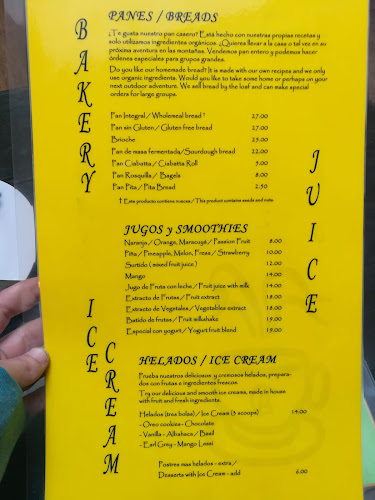 BAKERY
PANES / BREADS
¿Te gusta nuestro pan casero? Está hecho con nuestras propias recetas y
solo utilizamos ingredientes orgánicos. ¿Quieres llevar a la casa o tal vez en su
próxima aventura en las montañas. Vendemos pan entero y podemos hacer
órdenes especiales para grupos grandes.
Do you like our homemade bread? It is made with our own recipes and we only
use organic ingredients. Would you like to take some home or perhaps on your
next outdoor adventure. We sell bread by the loaf and can make special
orders for large groups.
Pan Integral / Wholemeal bread † 27.00
Pan sin Gluten / Gluten free bread 27.00
Brioche 23.00
Pan de masa fermentada/Sourdough bread 22.00
Pan Ciabatta / Ciabatta Roll 5.00
Pan Rosquilla / Bagels 8.00
Pan Pita / Pita Bread 2.50
† Este producto contiene nueces / This product contains seeds and nuts
JUICE
JUGOS y SMOOTHIES
Naranja / Orange, Maracuyá / Passion Fruit 8.00
Piña / Pineapple, Melon, Fresa / Strawberry 10.00
Surtido ( mixed fruit juice ) 12.00
Mango 14.00
Jugo de Fruta con leche / Fruit juice with milk 14.00
Extracto de Frutas / Fruit extract 18.00
Extracto de Vegetales / Vegetables extract 18.00
Batido de frutas / Fruit milkshake 19.00
Especial con yogurt / Yogurt fruit blend 19.00
ICE CREAM
HELADOS / ICE CREAM
Prueba nuestros deliciosos y cremosos helados, prepara-
dos con frutas e ingredientes frescos.
Try our delicious and smooth ice creams, made in house
with fruit and fresh ingredients.
Helados (tres bolas) / Ice Cream (3 scoops) 14.00
- Oreo cookies - Chocolate
- Vanilla - Albahaca / Basil
- Earl Grey - Mango Lassi
Postres mas helados - extra /
Desserts with Ice Cream - add 6.00